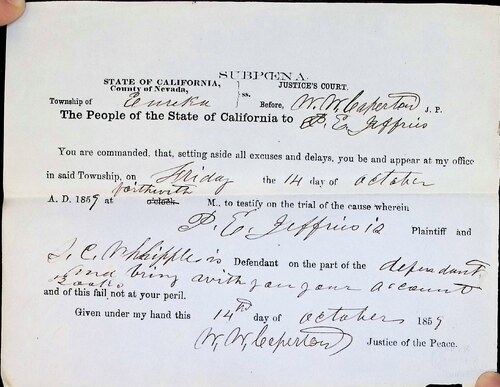 SUBPŒNA.
STATE OF CALIFORNIA,
County of Nevada,
ss.
JUSTICE'S COURT.
Township of Eureka Before, W. W. Caperton J. P.
The People of the State of California to P. E. Jeffries
You are commanded, that, setting aside all excuses and delays, you be and appear at my office
in said Township, on Friday the 14 day of october
A. D. 1859 at forthwith o'clock M., to testify on the trial of the cause wherein
P. E. Jeffries is Plaintiff and
C. Whipple is Defendant on the part of the defendant
and bring with you your account
Books
and of this fail not at your peril.
Given under my hand this 14th day of october 1859
W. W. Caperton Justice of the Peace.